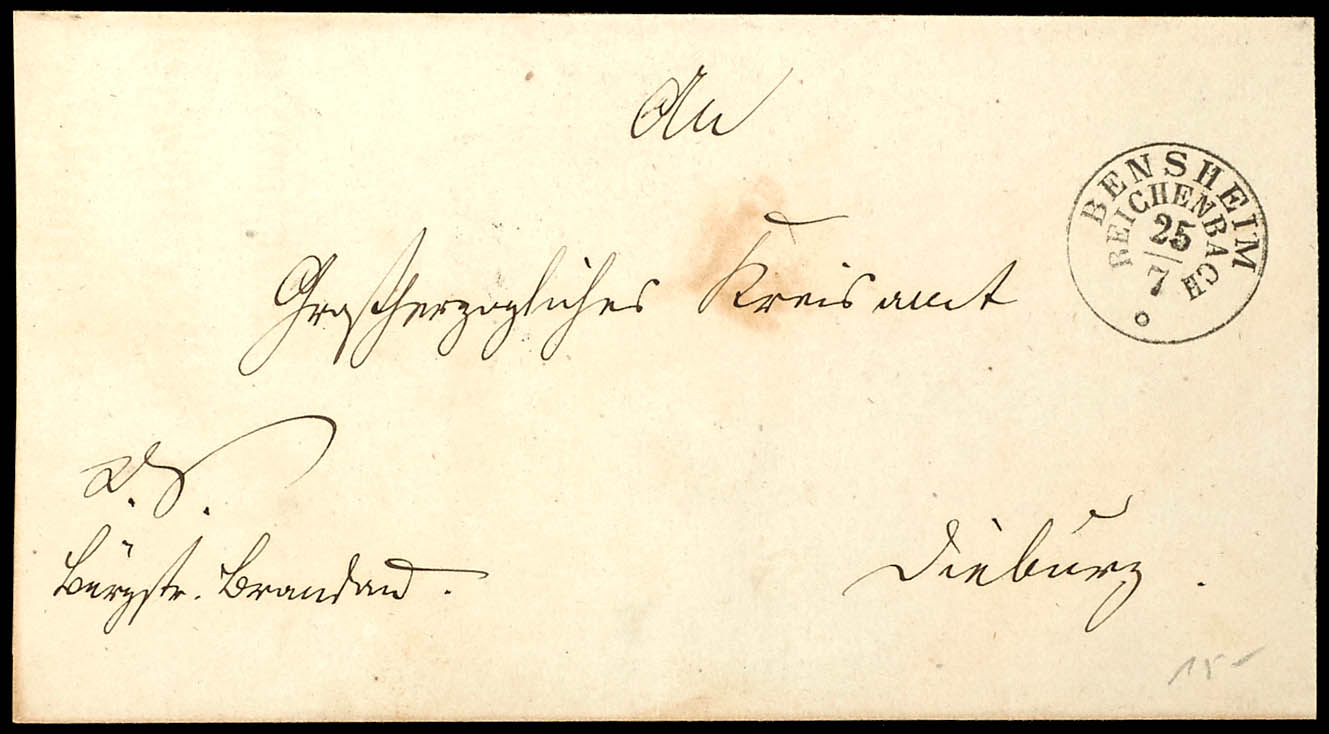 An
BENSHEIM
REICHENBACH
25
7
Großherzogliches Kreisamt
D. S.
Bürgstr. Brandau.
Dieburg.
15-